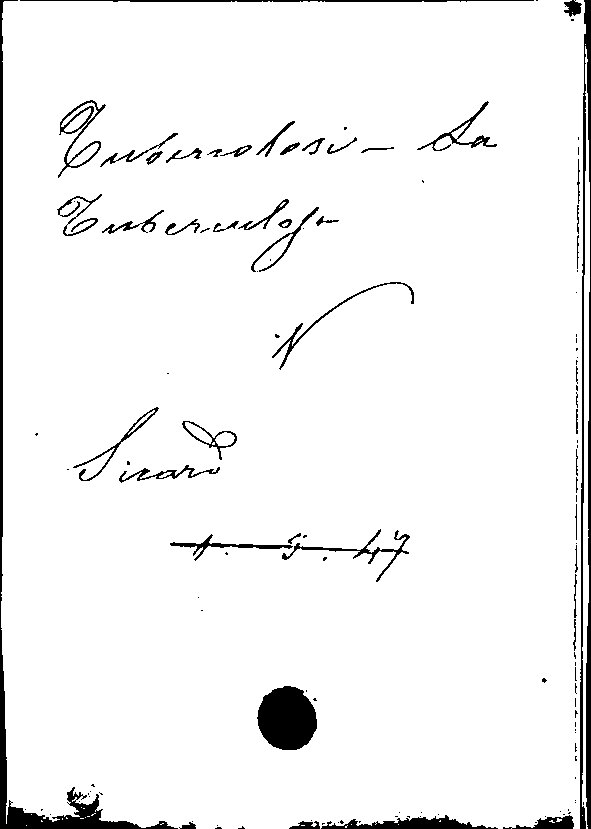 Tubercolosi - La
Tuberculose
V
Sicard
1. 5. 47